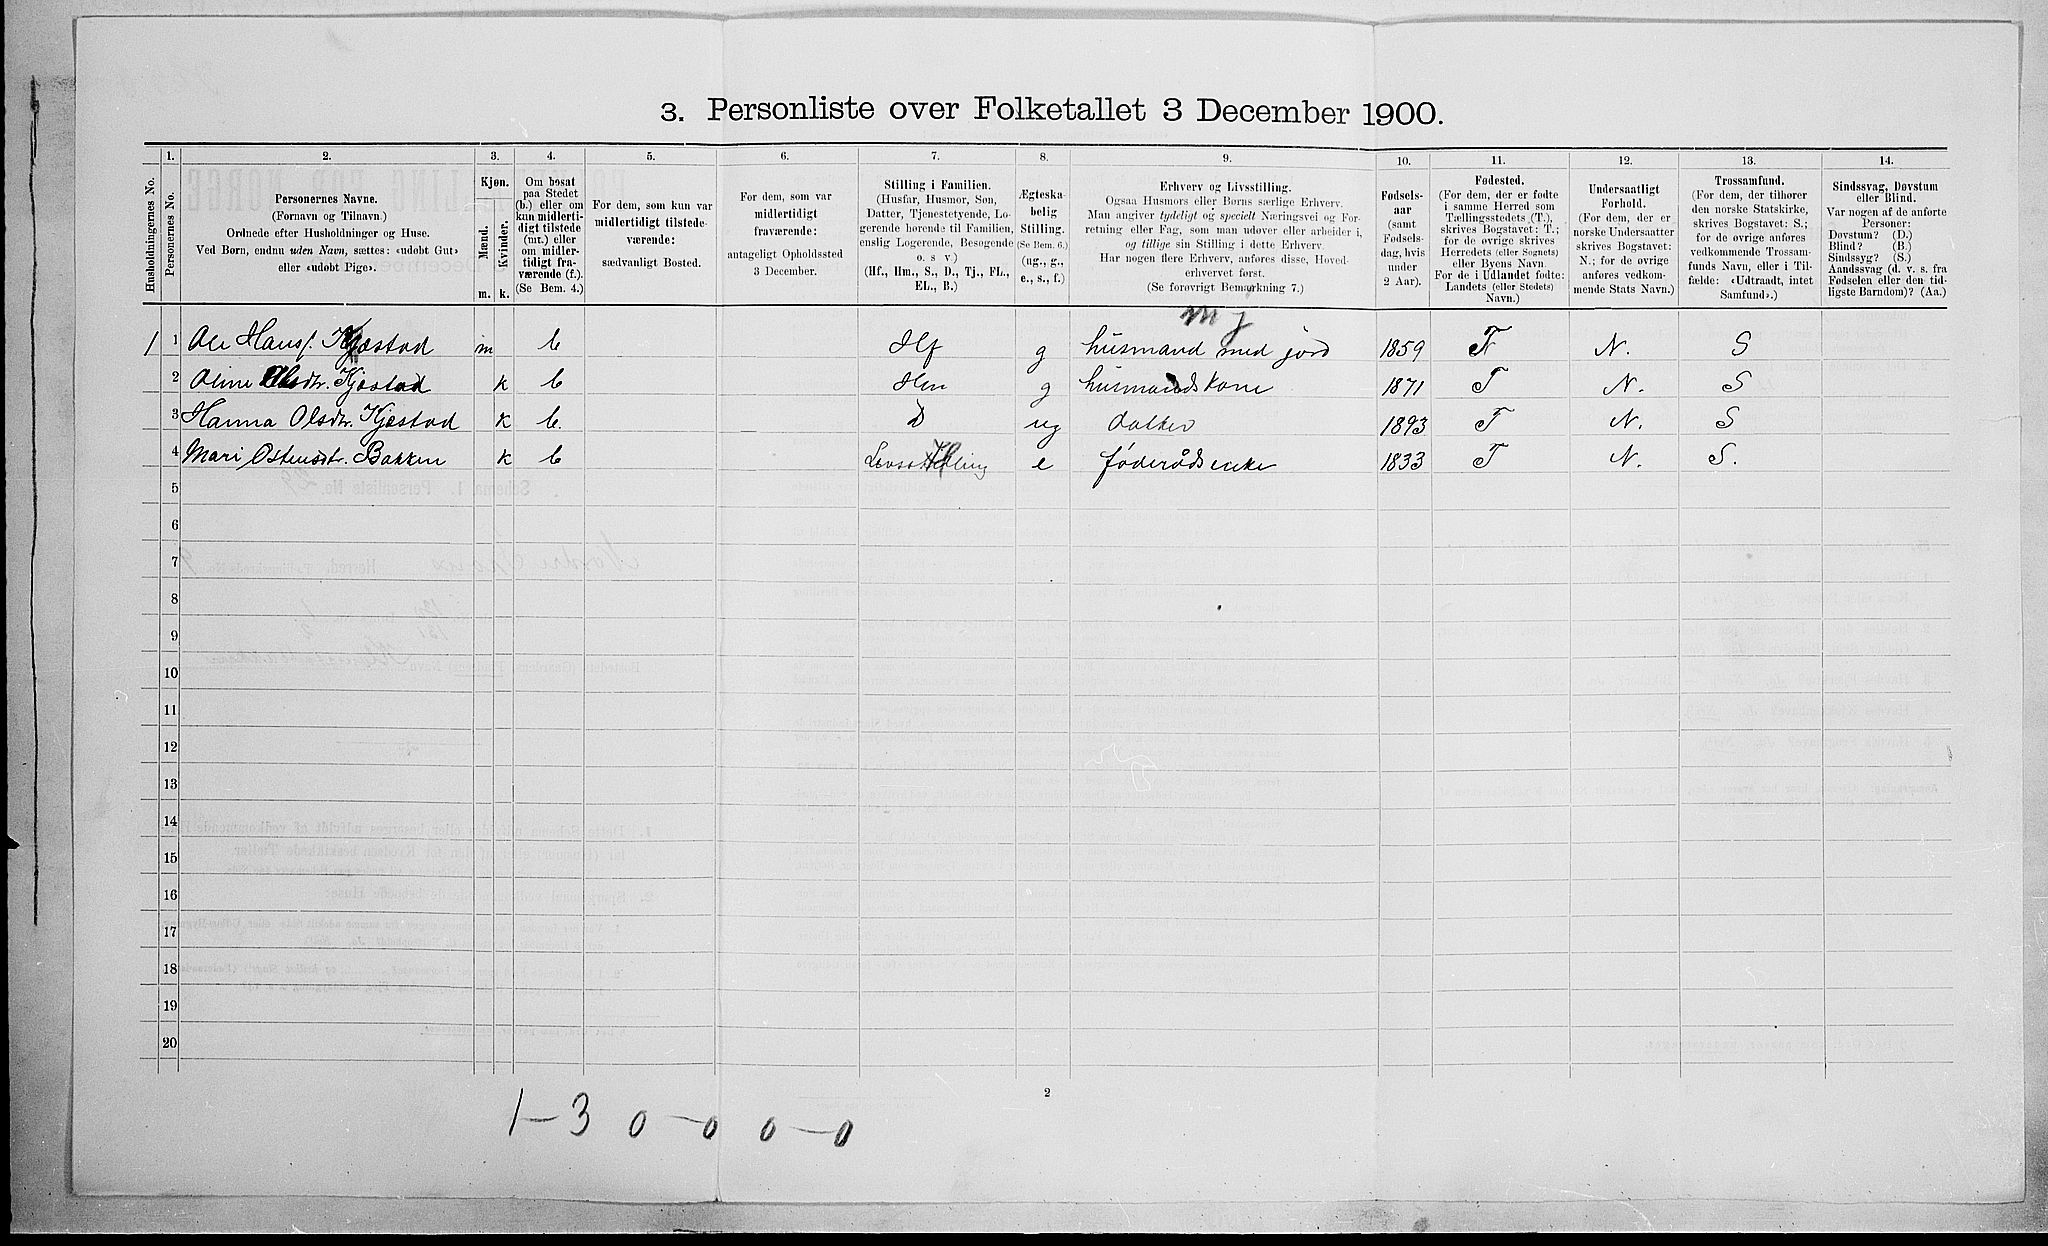 3. Personliste over Folketallet 3 December 1900.
Husholdningernes No.
1.
Personernes No.
2.
Personernes Navne.
(Fornavn og Tilnavn.)
Ordnede efter Husholdninger og Huse.
Ved Børn, endnu uden Navn, sættes: «udøbt Gut»
eller «udøbt Pige».
3.
Kjøn.
Mænd.
Kvinder.
m. k.
4.
Om bosat
paa Stedet
(b.) eller om
kun midlerti-
digt tilstede
(mt.) eller
om midler-
tidigt fra-
værende (f.).
(Se Bem. 4.)
5.
For dem, som kun var
midlertidigt tilstede-
værende:
sædvanligt Bosted.
6.
For dem, som var
midlertidigt
fraværende:
antageligt Opholdssted
3 December.
7.
Stilling i Familien.
(Husfar, Husmor, Søn,
Datter, Tjenestetyende, Lo-
gerende hørende til Familien,
enslig Logerende, Besøgende
o. s. v.)
(Hf., Hm., S., D., Tj., FL.,
EL., B.)
8.
Ægteska-
belig
Stilling.
(Se Bem. 6.)
(ug., g.,
e., s., f.)
9.
Erhverv og Livsstilling.
Ogsaa Husmors eller Børns særlige Erhverv.
Man angiver tydeligt og specielt Næringsvei og For-
retning eller Fag, som man udøver eller arbeider i,
og tillige sin Stilling i dette Erhverv.
Har nogen flere Erhverv, anføres disse, Hoved-
erhvervet først.
(Se forøvrigt Bemærkning 7.)
10.
Fødsels-
aar
(samt
Fødsels-
dag, hvis
under
2 Aar).
11.
Fødested.
(For dem, der er fødte
i samme Herred som
Tællingsstedets (T.),
skrives Bogstavet: T.;
for de øvrige skrives
Herredets (eller Sognets)
eller Byens Navn.
For de i Udlandet fødte:
Landets (eller Stedets)
Navn.)
12.
Undersaatligt
Forhold.
(For dem, der er
norske Undersaatter
skrives Bogstavet:
N.; for de øvrige
anføres vedkom-
mende Stats Navn.)
13.
Trossamfund.
(For dem, der tilhører
den norske Statskirke,
skrives Bogstavet: S.;
for de øvrige anføres
vedkommende Trossam-
funds Navn, eller i Til-
fælde: «Udtraadt, intet
Samfund».)
14.
Sindssvag, Døvstum
eller Blind.
Var nogen af de anførte
Personer:
Døvstum? (D.)
Blind? (B.)
Sindssyg? (S.)
Aandssvag (d. v. s. fra
Fødselen eller den tid-
ligste Barndom)? (Aa.)
m j
1 1 Ole Hansf. Kjæstad m b Hf g husmand med jord 1859 T N. S
2 Oline Olsdtr. Kjæstad k b Hm g husmandskone 1871 T N. S
3 Hanna Olsdtr. Kjæstad k b. D ug datter 1893 T N. S
4 Mari Ostensdtr. Bakken k b e føderådsenke 1833 T N. S.
5
6
7
8
9
10
11
12
13
14
15
16
17
18
19
20
2
1-3 0-0 0-0